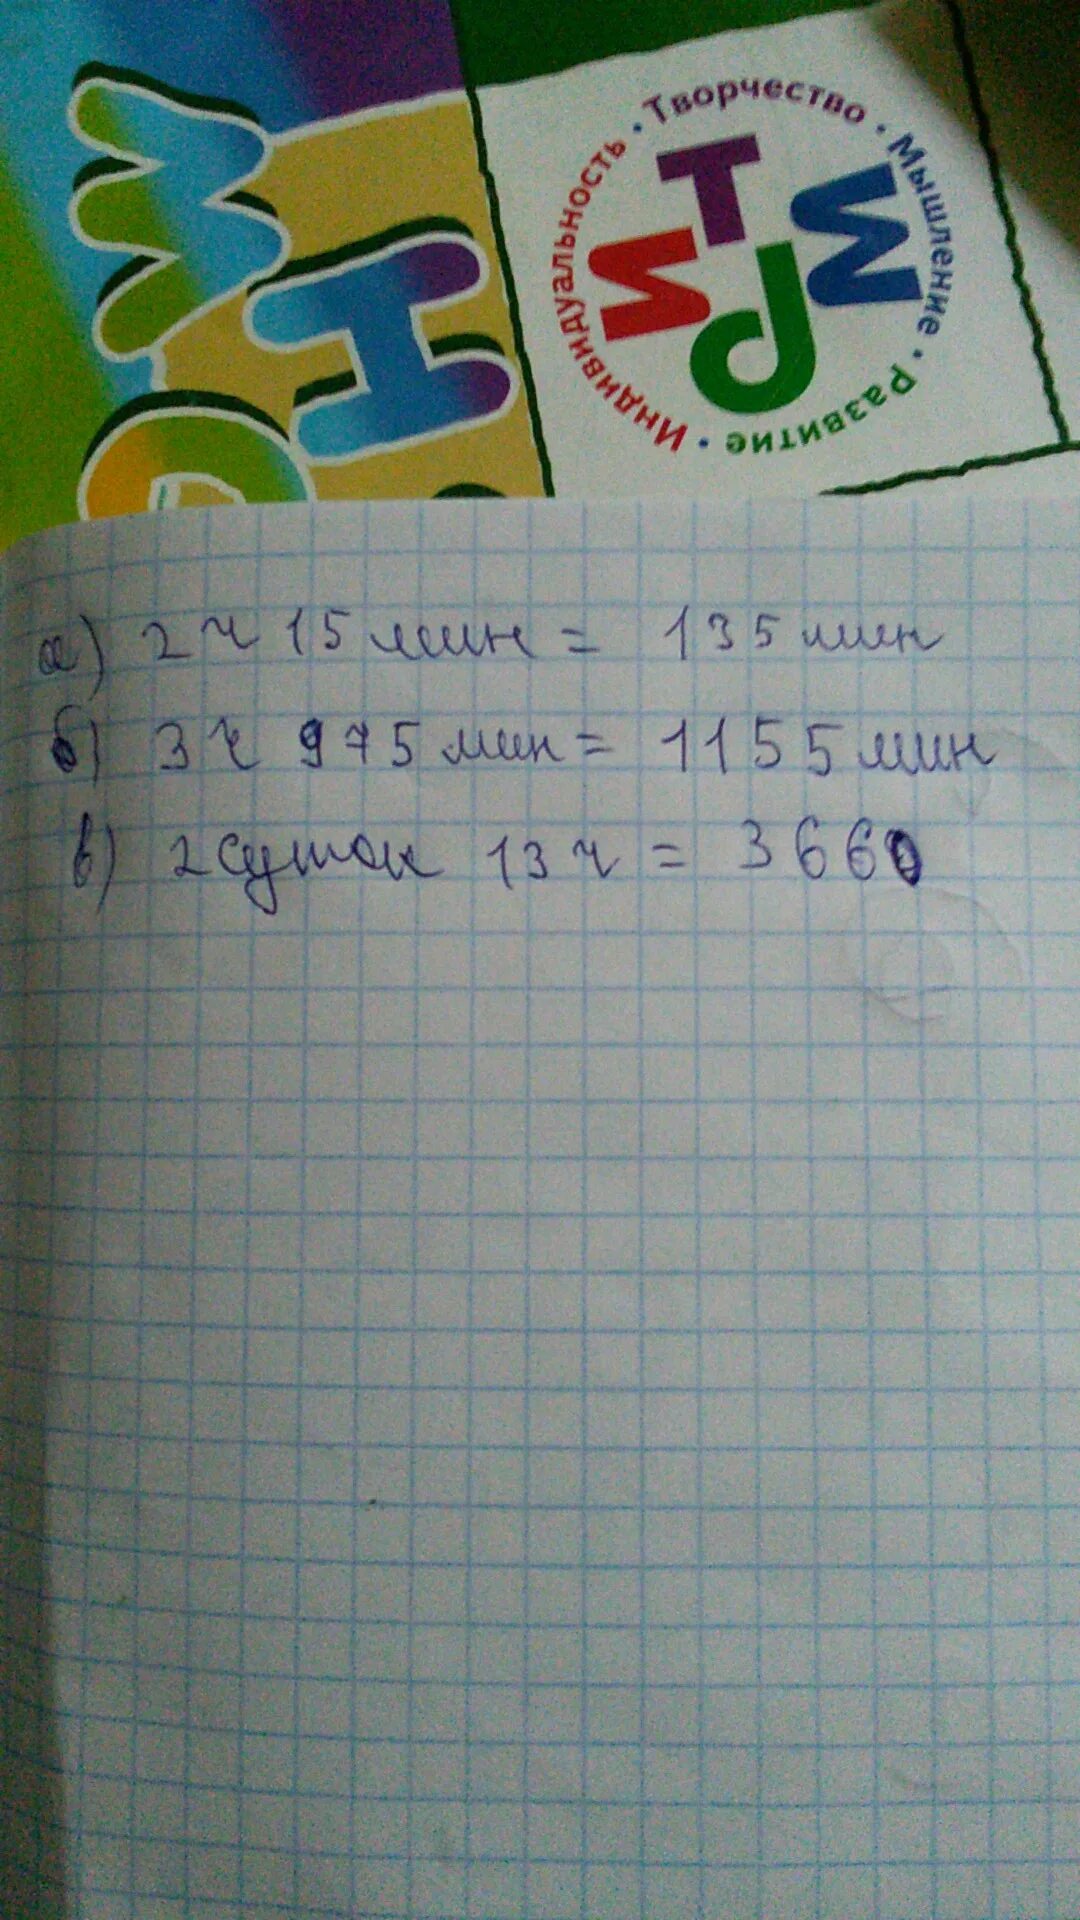 Творчество • Мышление • Развитие • Индивидуальность •
ТРИМ
а) 2 ч 15 мин = 135 мин
б) 3 ч 975 мин = 1155 мин
в) 2 суток 13 ч = 3660